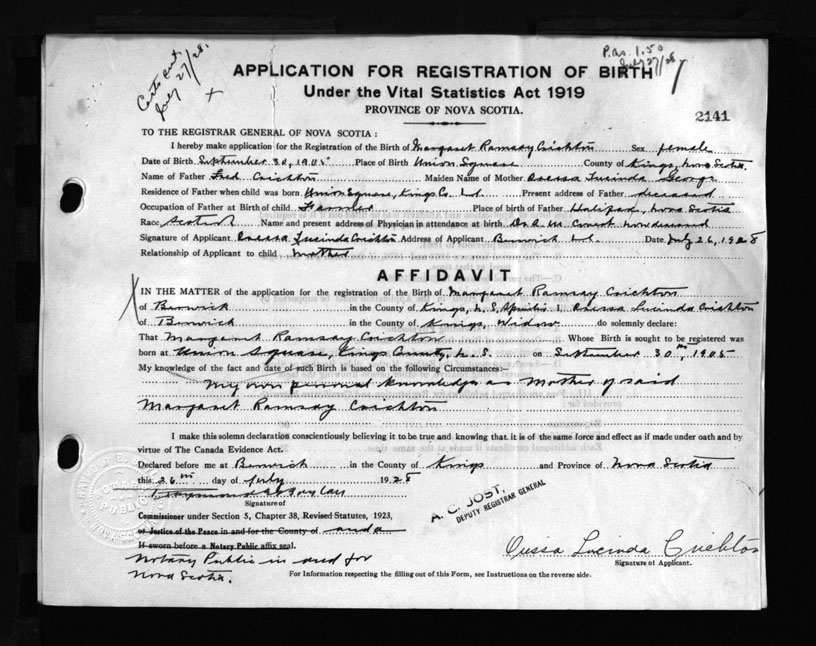 Certs cut
July 27/28.
P.a. 1.50
July 27/28
APPLICATION FOR REGISTRATION OF BIRTH
Under the Vital Statistics Act 1919
PROVINCE OF NOVA SCOTIA.
2141
TO THE REGISTRAR GENERAL OF NOVA SCOTIA :
I hereby make application for the Registration of the Birth of Margaret Ramsay Crichton Sex female
Date of Birth September 30, 1905 Place of Birth Union Square County of Kings, Nova Scotia
Name of Father Fred Crichton Maiden Name of Mother Lucinda George
Residence of Father when child was born Union Square, Kings Co. N.S. Present address of Father deceased
Occupation of Father at Birth of child Farmer Place of birth of Father Halifax, Nova Scotia
Race Scotch Name and present address of Physician in attendance at birth Dr. now deceased
Signature of Applicant Lucinda Crichton Address of Applicant Berwick N.S. Date July 26, 1928
Relationship of Applicant to child mother
AFFIDAVIT
IN THE MATTER of the application for the registration of the Birth of Margaret Ramsay Crichton
of Berwick in the County of Kings, N.S. I, Lucinda Crichton
of Berwick in the County of Kings, Widow do solemnly declare:
That Margaret Ramsay Crichton Whose Birth is sought to be registered was
born at Union Square, Kings County, N.S. on September 30th, 1905
My knowledge of the fact and date of such Birth is based on the following Circumstances:—
My own personal knowledge as Mother of said
Margaret Ramsay Crichton
I make this solemn declaration conscientiously believing it to be true and knowing that it is of the same force and effect as if made under oath and by
virtue of The Canada Evidence Act.
Declared before me at Berwick in the County of Kings and Province of Nova Scotia
this 26th day of July 1928
Signature of
Commissioner under Section 5, Chapter 38, Revised Statutes, 1923,
or Justice of the Peace in and for the County of
If sworn before a Notary Public affix seal.
Notary Public in and for
Nova Scotia.
A. C. JOST,
DEPUTY REGISTRAR GENERAL
Lucinda Crichton
Signature of Applicant.
For Information respecting the filling out of this Form, see Instructions on the reverse side.